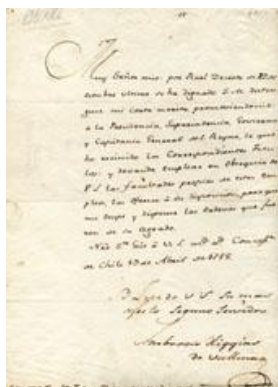 Muy Señor mio: por Real Decreto de
se ha dignado S.M. distin
guir mi corto merito promoviendome
a la Presidencia, Superintendencia, Govierno
y Capitania General del Reyno, lo que
he recivido los Correspondientes Titu
los: y deseando emplear en Obsequio de
V.S. las facultades propias de estos Em
pleos, las ofresco à su disposicion, para que
me ocupe y dispense las ordenes que fue
ren de su agrado.
de Chile de Abril de 1788.
B. L. M. de V.S. su mas
Seguro Servidor
Ambrosio Higgins
de Vallenar